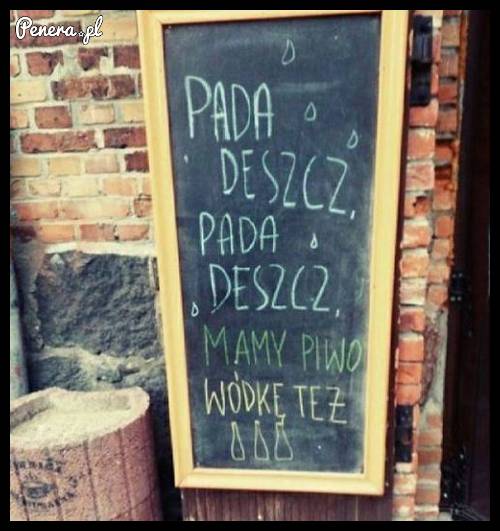 Penera.pl
PADA
DESZCZ,
PADA
DESZCZ,
MAMY PIWO
WÓDKĘ TEŻ